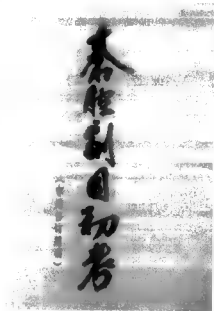 秦腔剧目初考